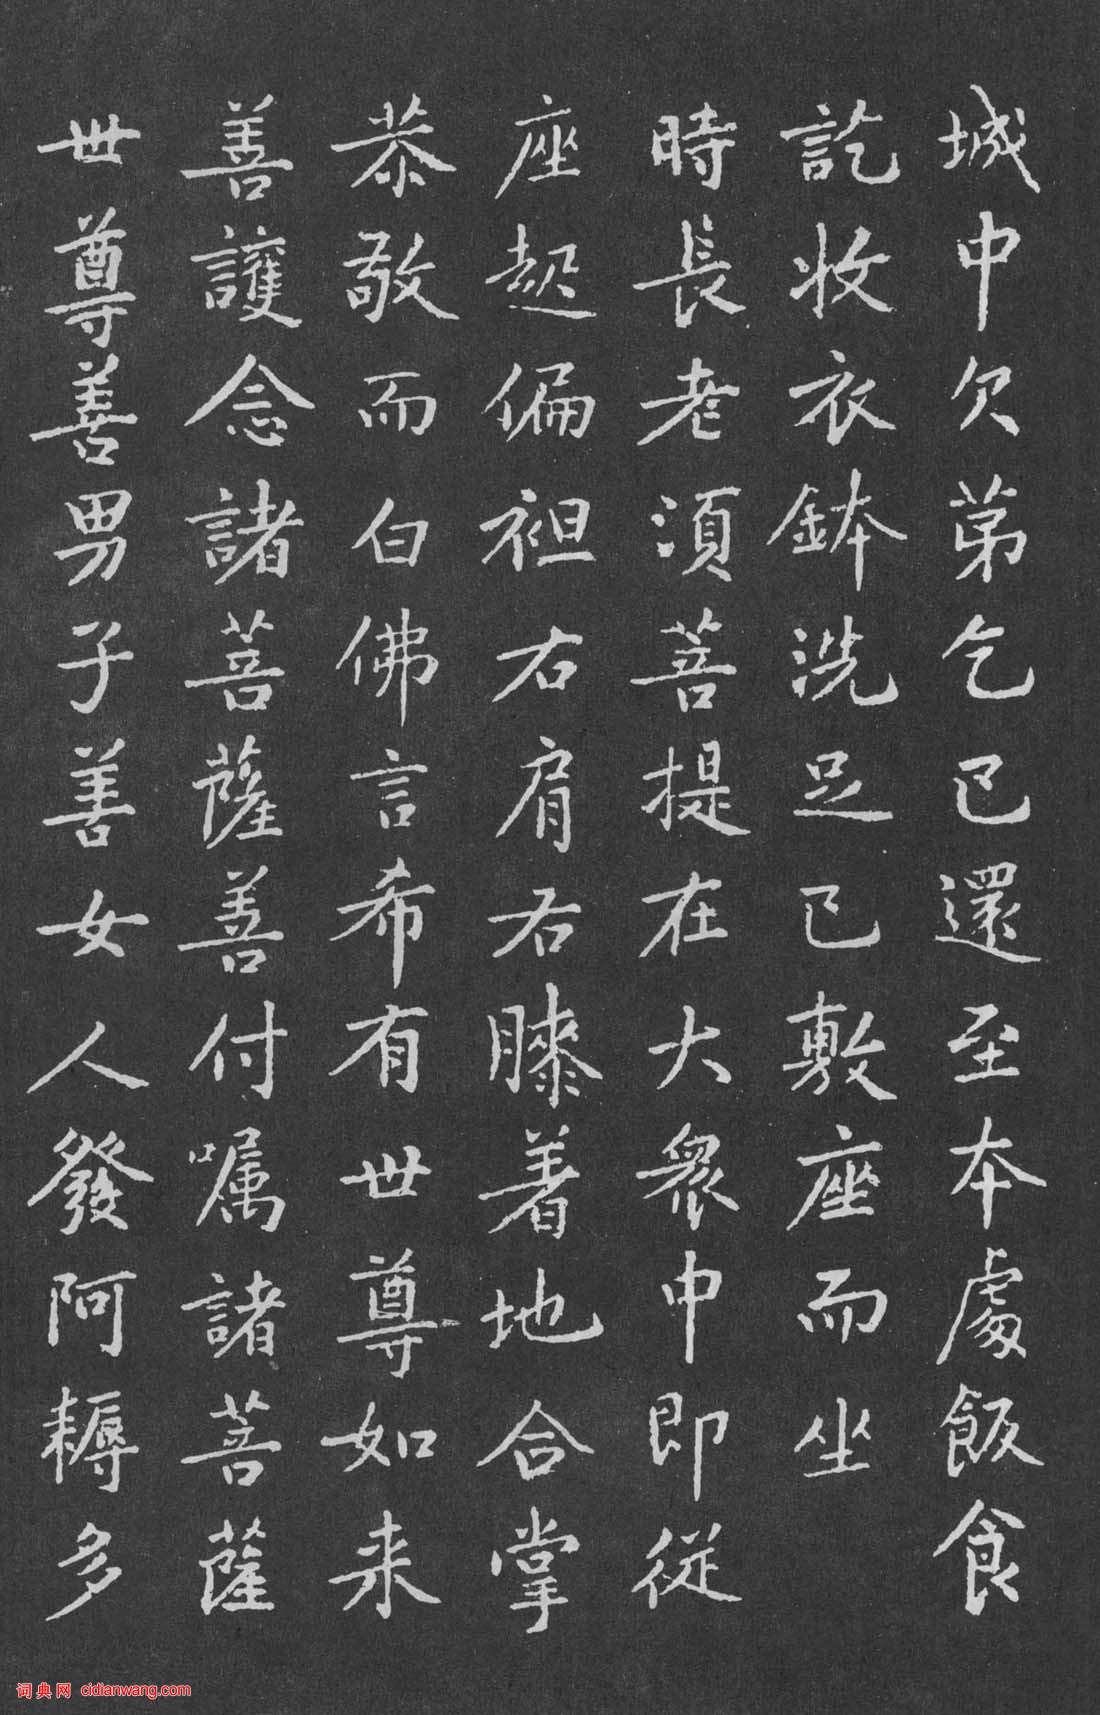 城中次苐乞已還至本處飯食
訖收衣鉢洗足已敷座而坐
時長老須菩提在大衆中即從
座起偏袒右肩右膝着地合掌
恭敬而白佛言希有世尊如来
善護念諸菩薩善付嘱諸菩薩
世尊善男子善女人發阿耨多
词典网 cidianwang.com